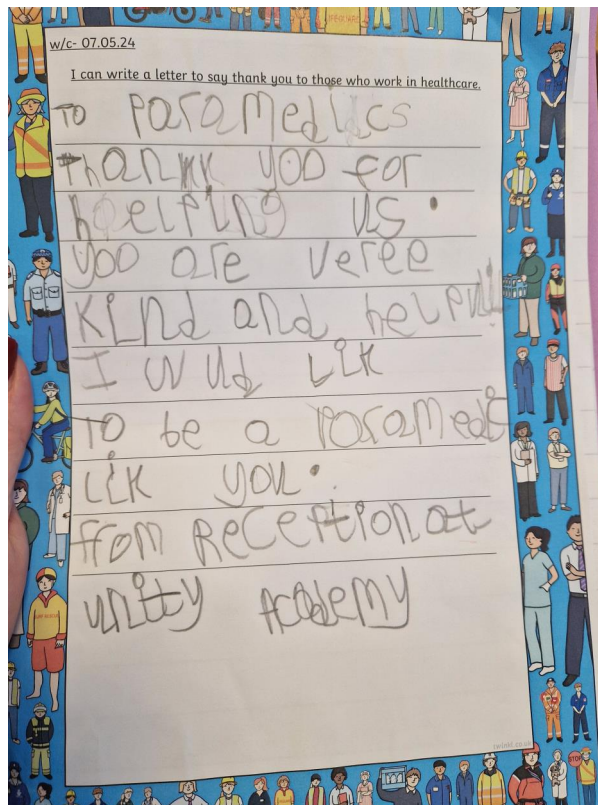 w/c- 07.05.24
I can write a letter to say thank you to those who work in healthcare.
To Paramedics
Thankk you for
helping us.
you are veree
kind and helpful
I wuld Lik
To be a Paramedic
Lik you.
from Reception at
unity Academy
twinkl.co.uk